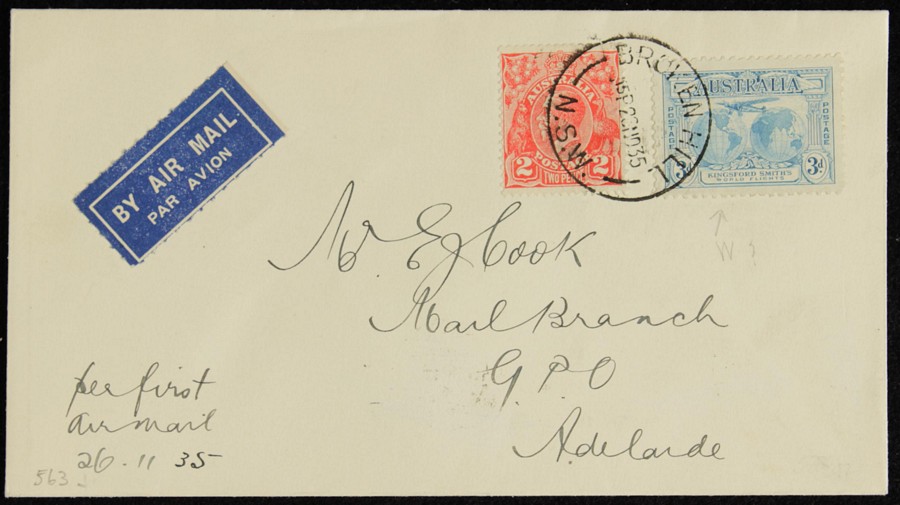 BY AIR MAIL
PAR AVION
AUSTRALIA
2 2
POSTAGE
TWO PENCE
BROKEN HILL
26NO35
N.S.W.
AUSTRALIA
POSTAGE POSTAGE
3d 3d
KINGSFORD SMITH'S
WORLD FLIGHTS
W
Mr. EJ Cook
Mail Branch
G.P.O
Adelaide
per first
air mail
26-11 35
563